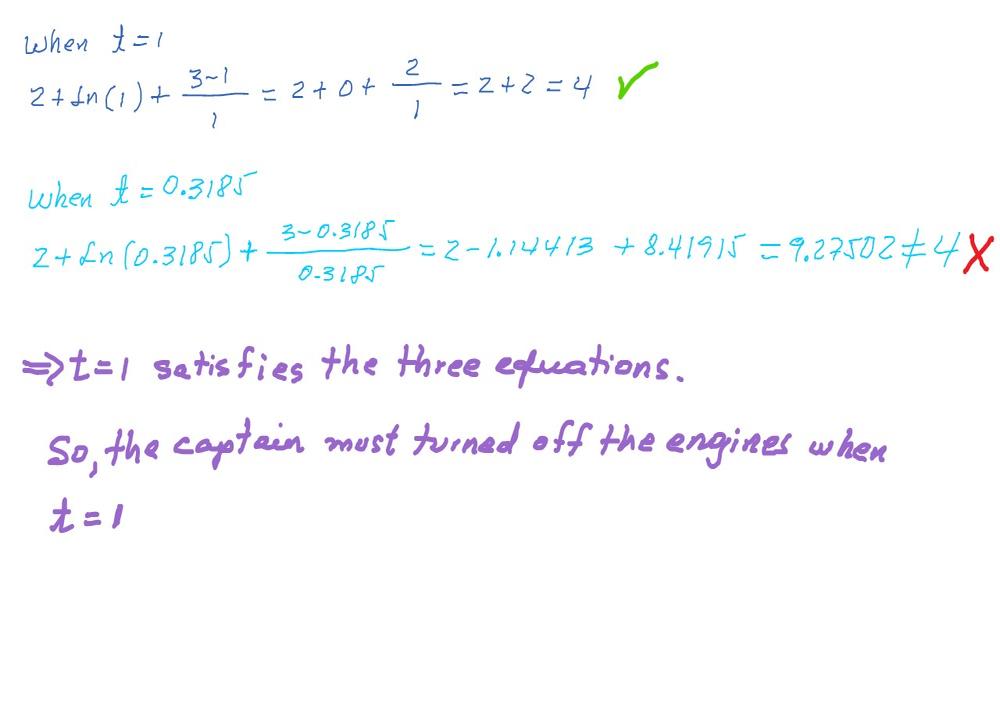 when t=1
2+ln(1)+ (3-1)/1 = 2+0+ 2/1 = 2+2 = 4 ✓
when t = 0.3185
2+ln(0.3185)+ (3-0.3185)/0.3185 = 2-1.14413 + 8.41915 = 9.27502 ≠ 4 X
⇒ t=1 satisfies the three equations.
So, the captain must turned off the engines when
t=1